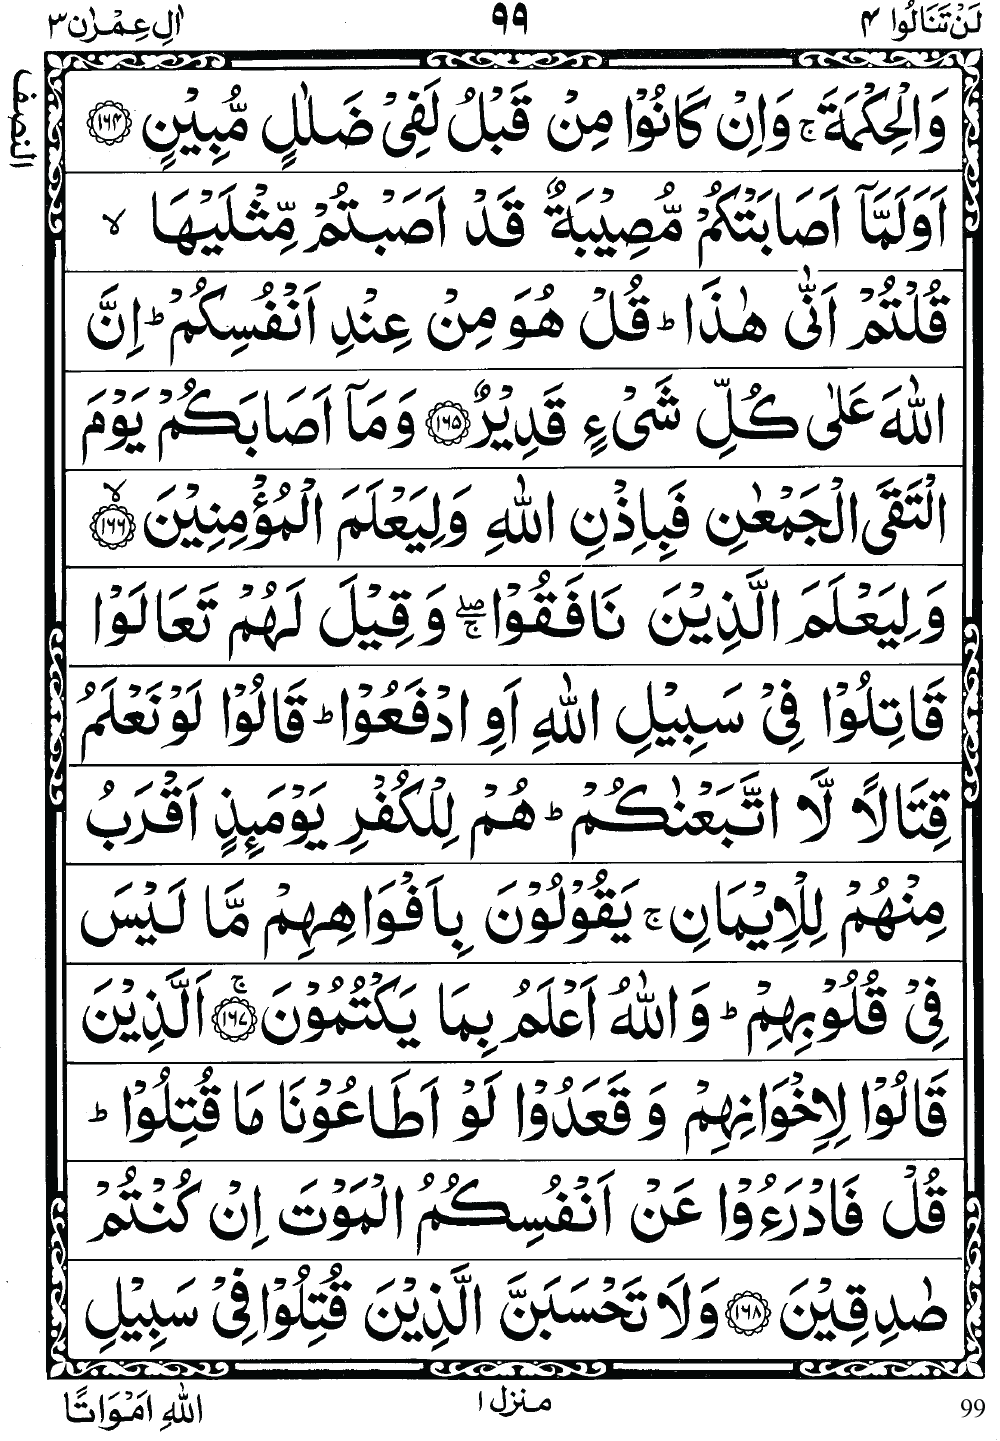 لَنْ تَنَالُوا ۴ ۹۹ اٰلِ عِمْرٰن ۳
النصف
وَالْحِكْمَةَ ۚ وَاِنْ كَانُوْا مِنْ قَبْلُ لَفِیْ ضَلٰلٍ مُّبِیْنٍ ﴿۱۶۴﴾
اَوَلَمَّاۤ اَصَابَتْكُمْ مُّصِیْبَةٌ قَدْ اَصَبْتُمْ مِّثْلَیْهَا ۙ
قُلْتُمْ اَنّٰی هٰذَا ؕ قُلْ هُوَ مِنْ عِنْدِ اَنْفُسِكُمْ ؕ اِنَّ
اللّٰهَ عَلٰی كُلِّ شَیْءٍ قَدِیْرٌ ﴿۱۶۵﴾ وَمَاۤ اَصَابَكُمْ یَوْمَ
الْتَقَی الْجَمْعٰنِ فَبِاِذْنِ اللّٰهِ وَلِیَعْلَمَ الْمُؤْمِنِیْنَ ۙ﴿۱۶۶﴾
وَلِیَعْلَمَ الَّذِیْنَ نَافَقُوْا ۖۚ وَقِیْلَ لَهُمْ تَعَالَوْا
قَاتِلُوْا فِیْ سَبِیْلِ اللّٰهِ اَوِ ادْفَعُوْا ؕ قَالُوْا لَوْ نَعْلَمُ
قِتَالًا لَّا اتَّبَعْنٰكُمْ ؕ هُمْ لِلْكُفْرِ یَوْمَىِٕذٍ اَقْرَبُ
مِنْهُمْ لِلْاِیْمَانِ ۚ یَقُوْلُوْنَ بِاَفْوَاهِهِمْ مَّا لَیْسَ
فِیْ قُلُوْبِهِمْ ؕ وَاللّٰهُ اَعْلَمُ بِمَا یَكْتُمُوْنَ ۚ﴿۱۶۷﴾ اَلَّذِیْنَ
قَالُوْا لِاِخْوَانِهِمْ وَقَعَدُوْا لَوْ اَطَاعُوْنَا مَا قُتِلُوْا ؕ
قُلْ فَادْرَءُوْا عَنْ اَنْفُسِكُمُ الْمَوْتَ اِنْ كُنْتُمْ
صٰدِقِیْنَ ﴿۱۶۸﴾ وَلَا تَحْسَبَنَّ الَّذِیْنَ قُتِلُوْا فِیْ سَبِیْلِ
اللّٰهِ اَمْوَاتًا منزل ۱ 99